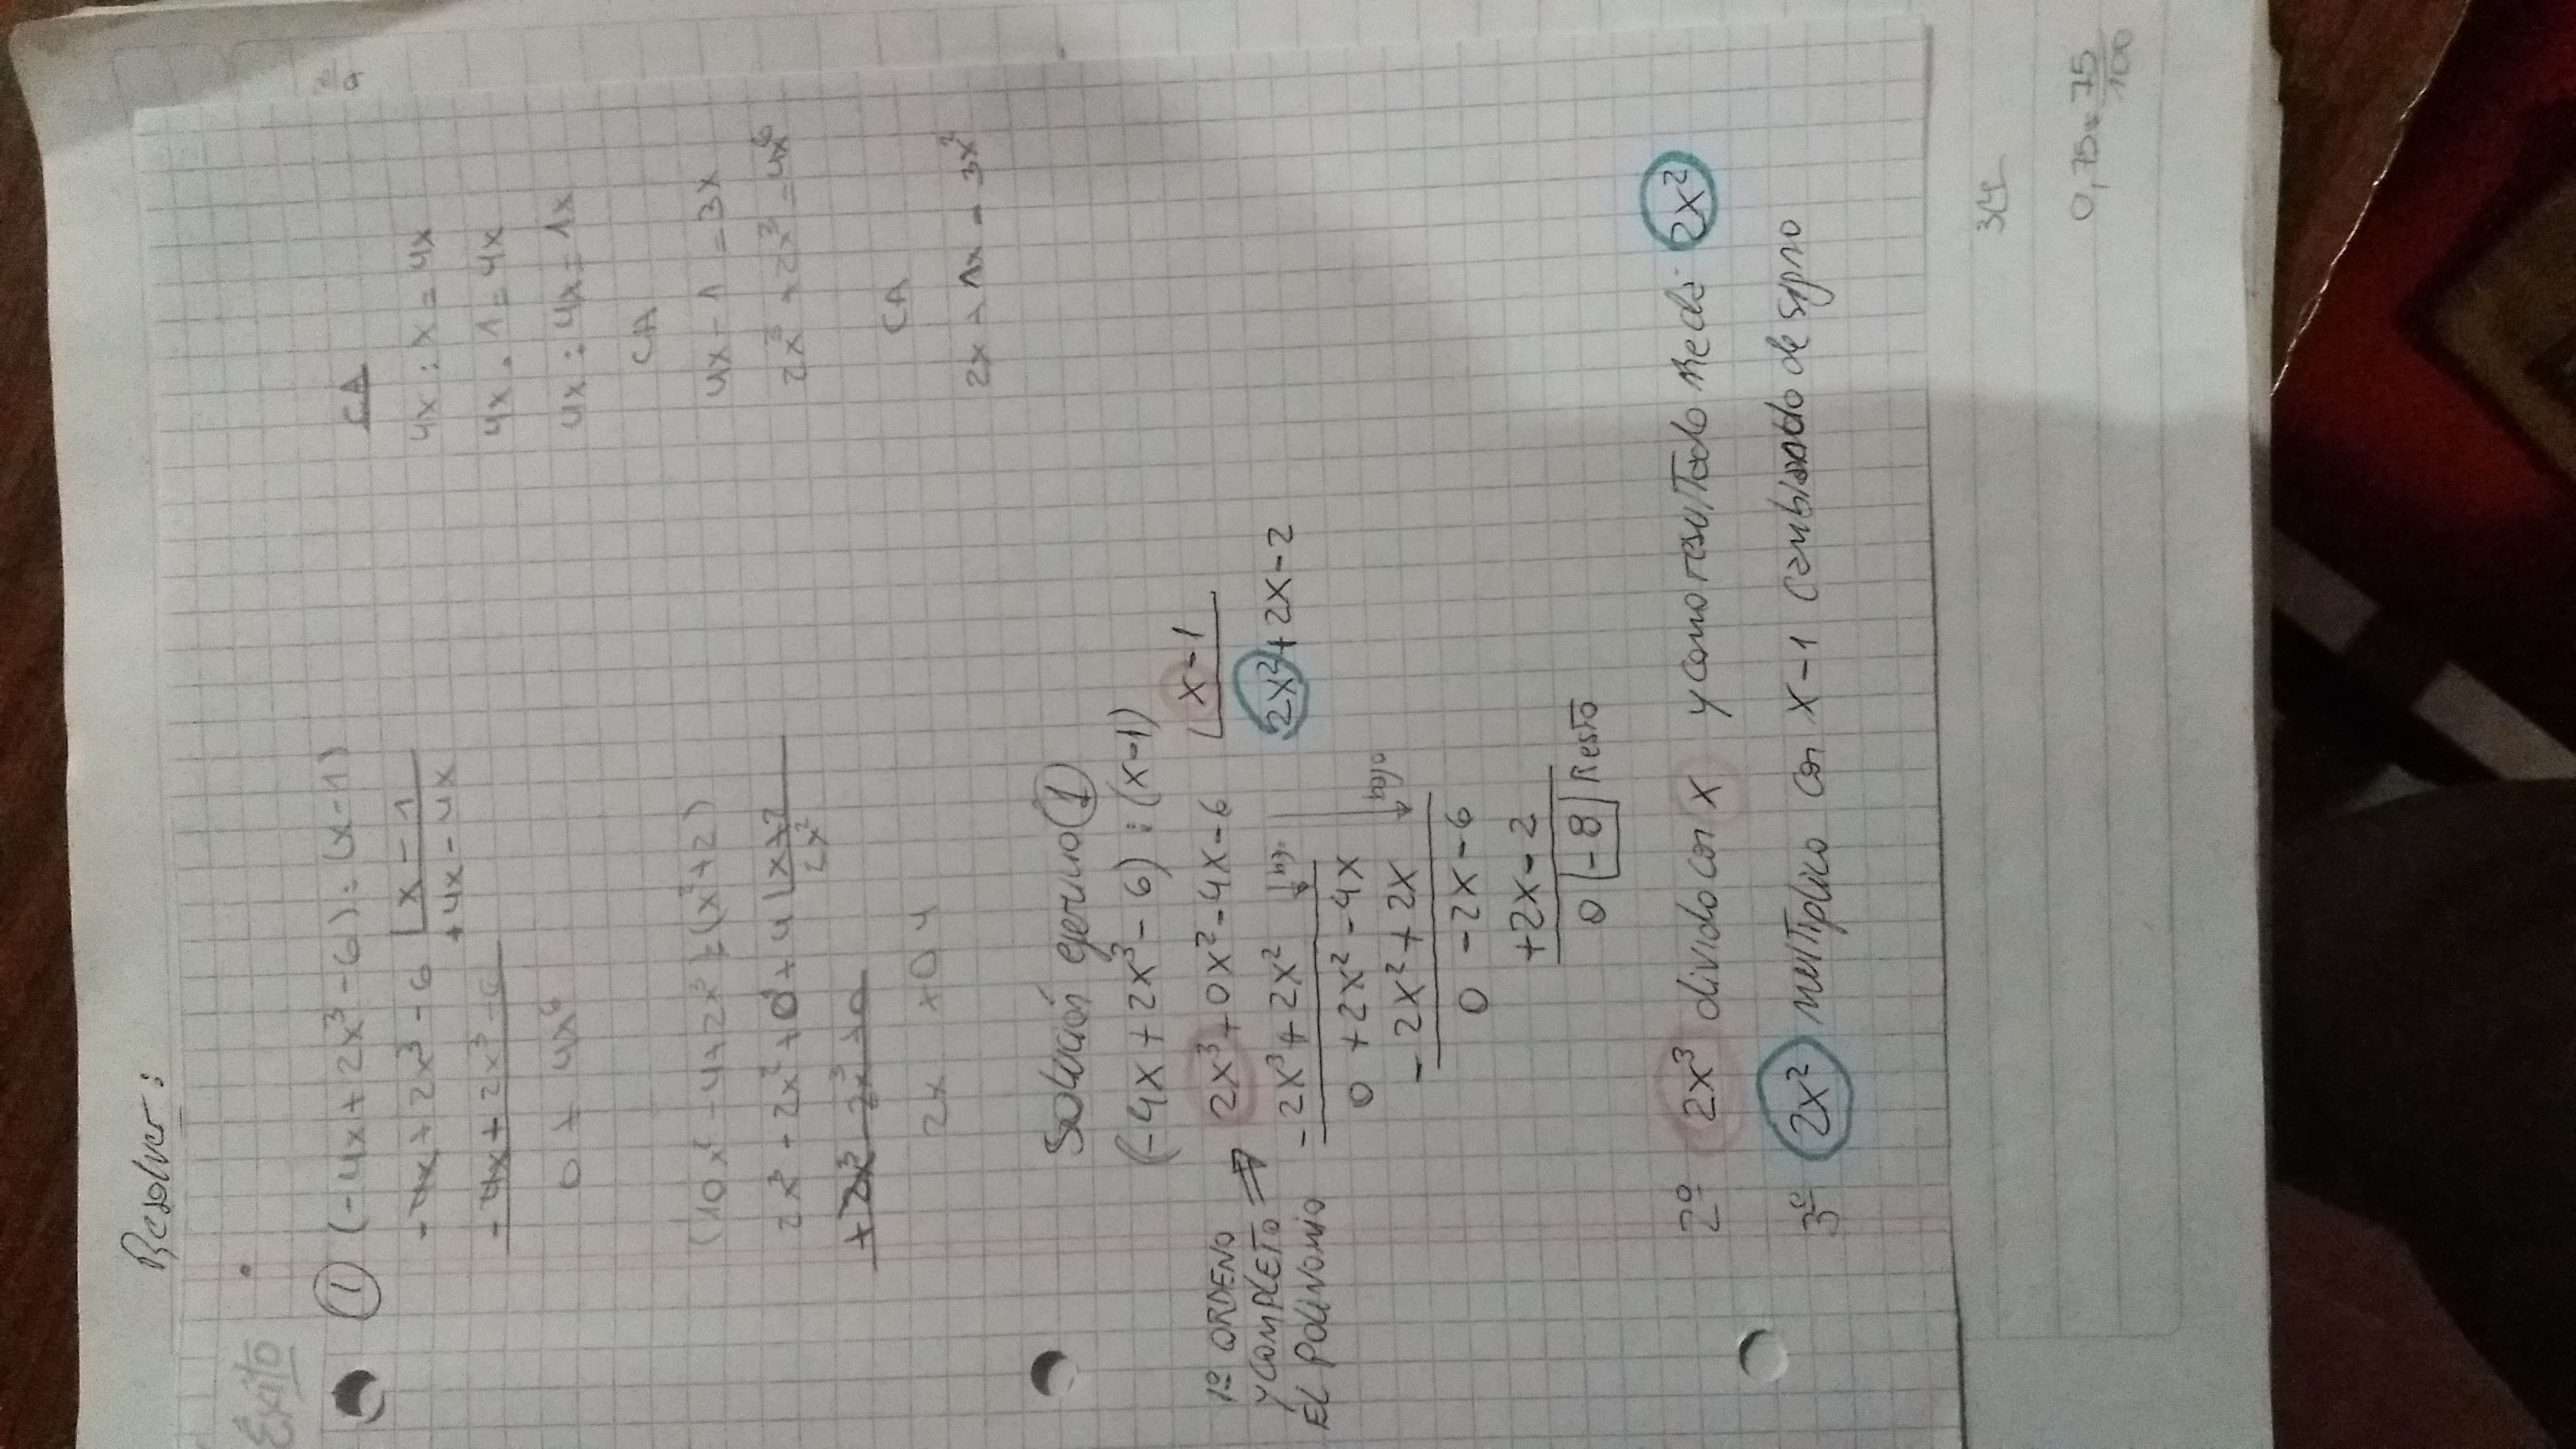 Resolver:
Éxito
① (-4x + 2x³ - 6) : (x-1)
CA
-4x + 2x³ - 6 | x - 1
+4x - 4x
4x : x = 4x
-4x + 2x³ - 6
4x . 1 = 4x
0 + 4x⁶
4x : 4x = 1x
CA
(10x² - 4 + 2x³) : (x² + 2)
4x - 1 = 3x
2x³ - 2x² + 0 + 4 | x + 2
2x²
2x³ + 2x³ = 4x⁶
+ 2x³ - 2x³ + 0
CA
2x + 0 4
2x + 1x = 3x²
Solución ejercicio ①
(-4x + 2x³ - 6) : (x-1)
1º ORDENO
Y COMPLETO ⇒
EL POLINOMIO
2x³ + 0x² - 4x - 6 | x - 1
- 2x³ + 2x²
2x² + 2x - 2
0 + 2x² - 4x
- 2x² + 2x
0 - 2x - 6
+2x - 2
0 -8 Resto
2º 2x³ divido con x y como resultado me da 2x²
3º 2x² multiplico con x-1 cambiando de signo
0,75 = 75/100